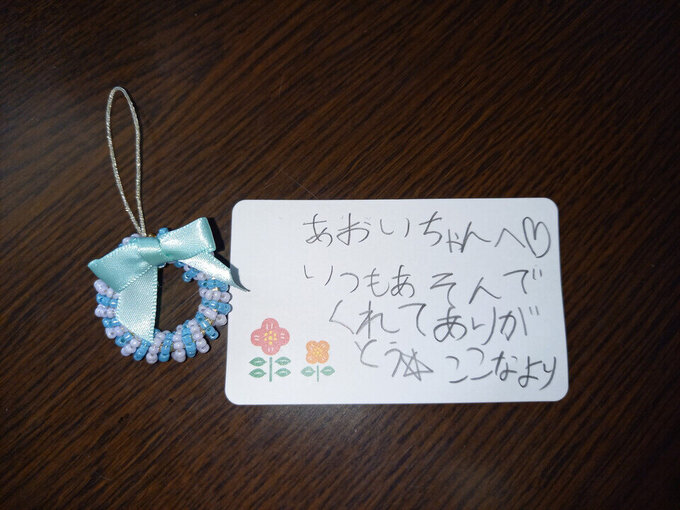 あおいちゃんへ♡
いつもあそんで
くれてありが
とう☆ ここなより